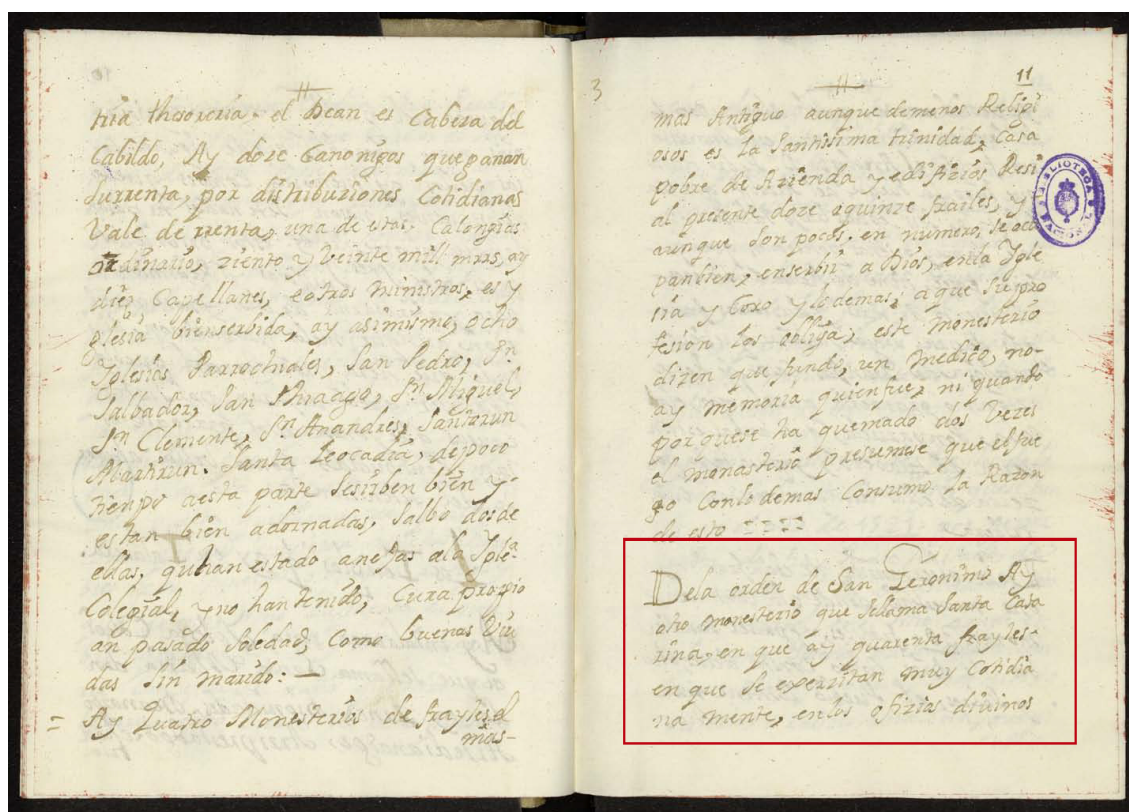 tria thesoreria. el Dean es Cabeza del
Cabildo, Ay doze Canonigos que ganan
Surrenta, por distribuziones Cotidianas
Vale de rrenta, una de estas. Calongias
ordinarias, ziento y veinte mill mrs, ay
diez Capellanes, e otros ministros, es y
glesia bienserbida, ay asimismo, ocho
Iglesias Parrochiales, San Pedro, Sn
Salbador, San Thiago, Sn Miguel,
Sn Clemente, Sn Anandres,
Santa Leocadia, depoco
tiempo aesta parte Sesirben bien y
estan bien adornadas, Salbo dosde
ellas, quehan estado anejas ala Igle.a
Colegial, y no han tenido, Cura propio
an pasado Soledad, Como buenas Viu
das Sin marido: —
= Ay Quatro Monesterios de frayles el
mas-
3
11
mas Antiguo aunque demenos Religi
osos es la Santissima trinidad, Casa
pobre de Azienda y edifizios Resi
al presente doze aquinze frailes, y
aunque Son pocos. en numero, Se ocu
panbien, enserbir a Dios, enla Igle
sia y Coro y lodemas, a que Supro
fesion los obliga, este monesterio
dizen que fundo, un medico, no-
ay memoria quienfue, ni quando
porquese ha quemado dos Vezes
el monasterio presumese que elfue
go Conlodemas Consumo la Razon
de esto
Dela orden de San Geronimo Ay
otro monesterio que Sellama Santa Cata
rina, en que ay quarenta frayles-
en que Se exerzitan muy Cotidia
na mente, enlos ofizios divinos
BIBLIOTECA NACIONAL